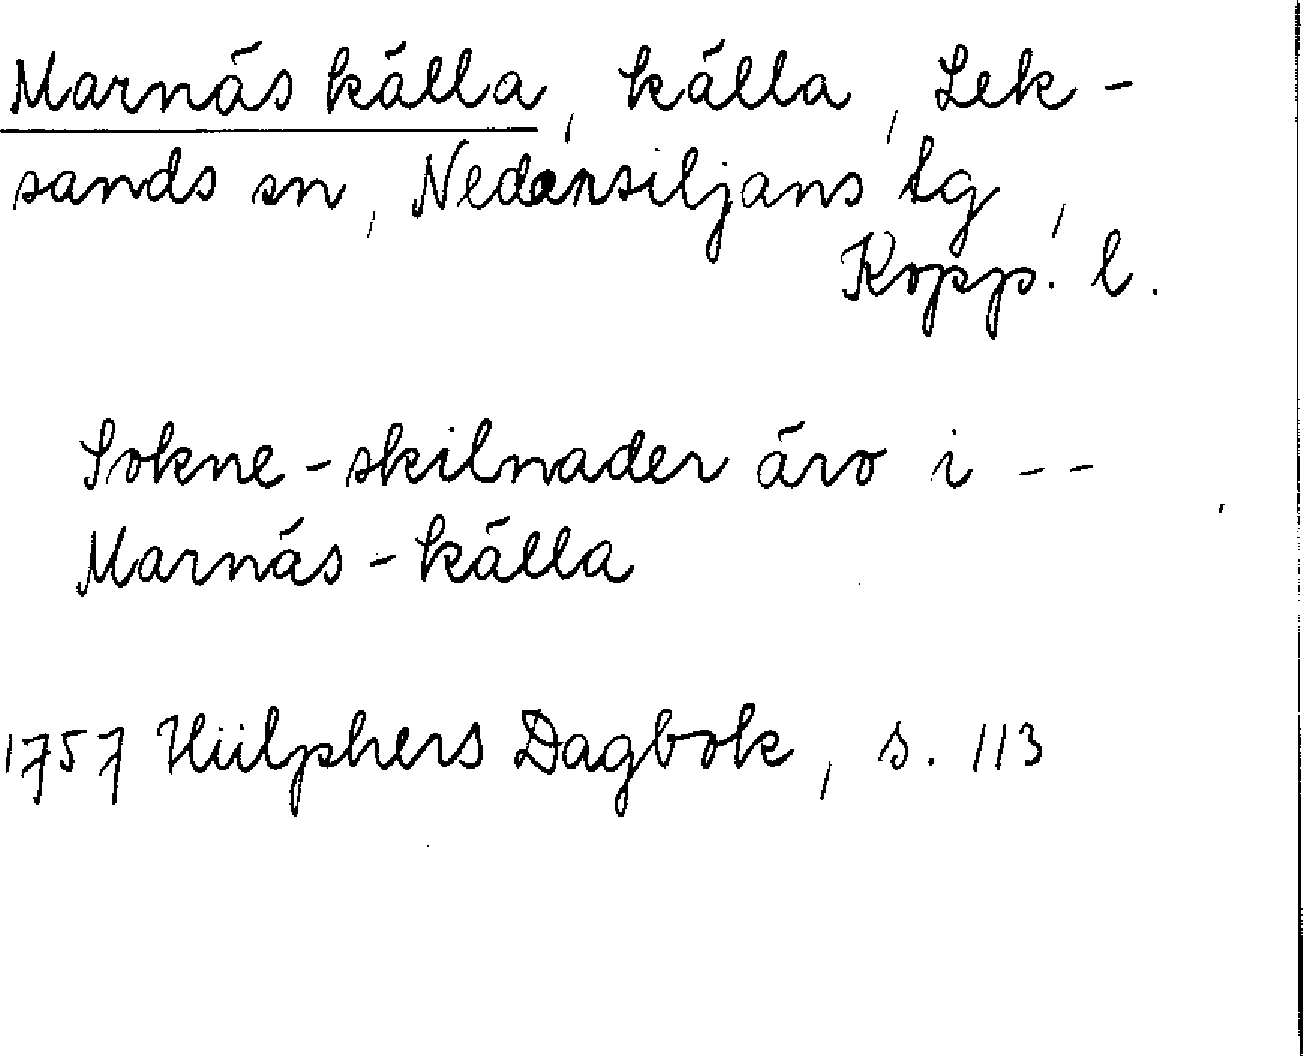 Marnäs källa, källa, Lek-
sands sn, Nedansiljans tg,
Kopp. l.
Sokne-skilnader äro i --
Marnäs-källa
1757 Hülphers Dagbok, s. 113